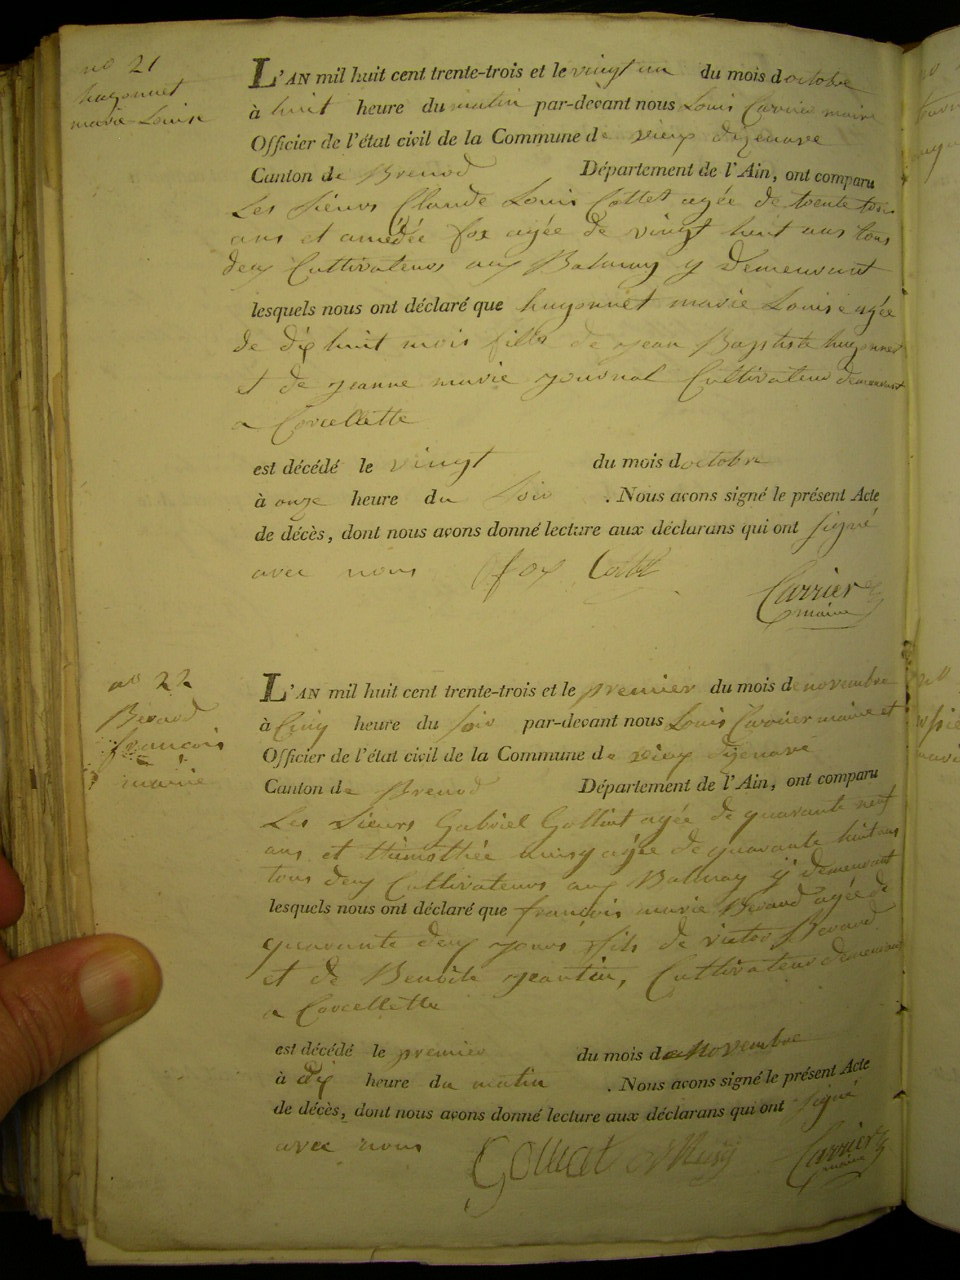 no 21
huyonnet
marie Louise
L'AN mil huit cent trente-trois et le vingt un du mois d octobre
à huit heure du matin par-devant nous Louis Carrier maire
Officier de l'état civil de la Commune de vieux dizenave
Canton de Brenod Département de l'Ain, ont comparu
Les Sieurs Claude Louis Cottet agée de trente trois
ans et amédée fox agée de vingt huit ans tous
deux Cultivateurs aux Balmay y Demeurant
lesquels nous ont déclaré que huyonnet marie Louise agée
de dix huit mois fille de jean Baptiste huyonnet
et de jeanne marie journal Cultivateur demeurant
a Corcellette
est décédé le vingt du mois d octobre
à onze heure du Soir . Nous avons signé le présent Acte
de décès, dont nous avons donné lecture aux déclarans qui ont signé
avec nous fox Cottet
Carrier
maire
no 22
Berod
francois
marie
L'AN mil huit cent trente-trois et le premier du mois d novembre
à Cinq heure du soir par-devant nous Louis Carrier maire et
Officier de l'état civil de la Commune de vieux dizenave
Canton de Brenod Département de l'Ain, ont comparu
Les Sieurs Gabriel Golliat agée de quarante neuf
ans et thimothée agée de quarante huit ans
tous deux Cultivateurs aux Balmay y demeurant
lesquels nous ont déclaré que françois marie Beraud agée de
quarante deux jours fils de victor Beraud
et de Benoite jeantin, Cultivateur demeurant
a Corcellette
est décédé le premier du mois de Novembre
à dix heure du matin . Nous avons signé le présent Acte
de décès, dont nous avons donné lecture aux déclarans qui ont signé
avec nous Golliat
Carrier
maire